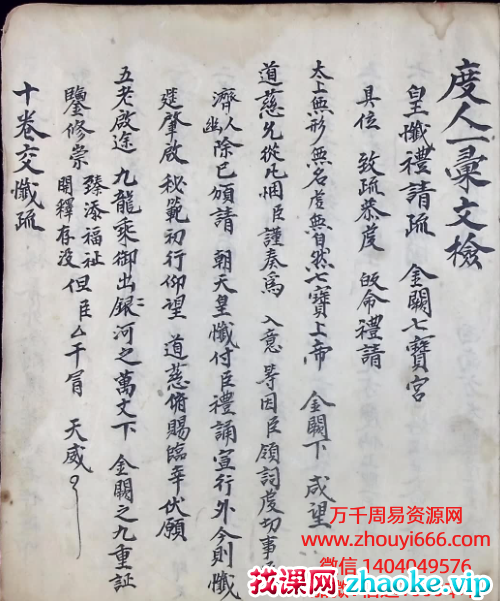 度人一彙文檢
皇懺禮請疏 金闕七寶宮
具位 致疏恭虔 皈命禮請
太上無形無名虛無自然七寶上帝 金闕下 咸望
道慈允從凡悃臣謹奏為 入意 等因臣領詞虔切事
濟人 幽除已頒請 朝天皇懺付臣禮誦宣行外今則懺
筵肇啟秘範初行仰望 道慈俯賜臨幸伏願
五老啟途 九龍乘御出銀河之萬丈下 金闕之九重証
鑒修崇 臻添福祉 開釋存沒 但臣厶干冒 天威
十卷交懺疏
万千周易资源网
www.zhouyi666.com
微信 1404049576
找课网zhaoke.vip